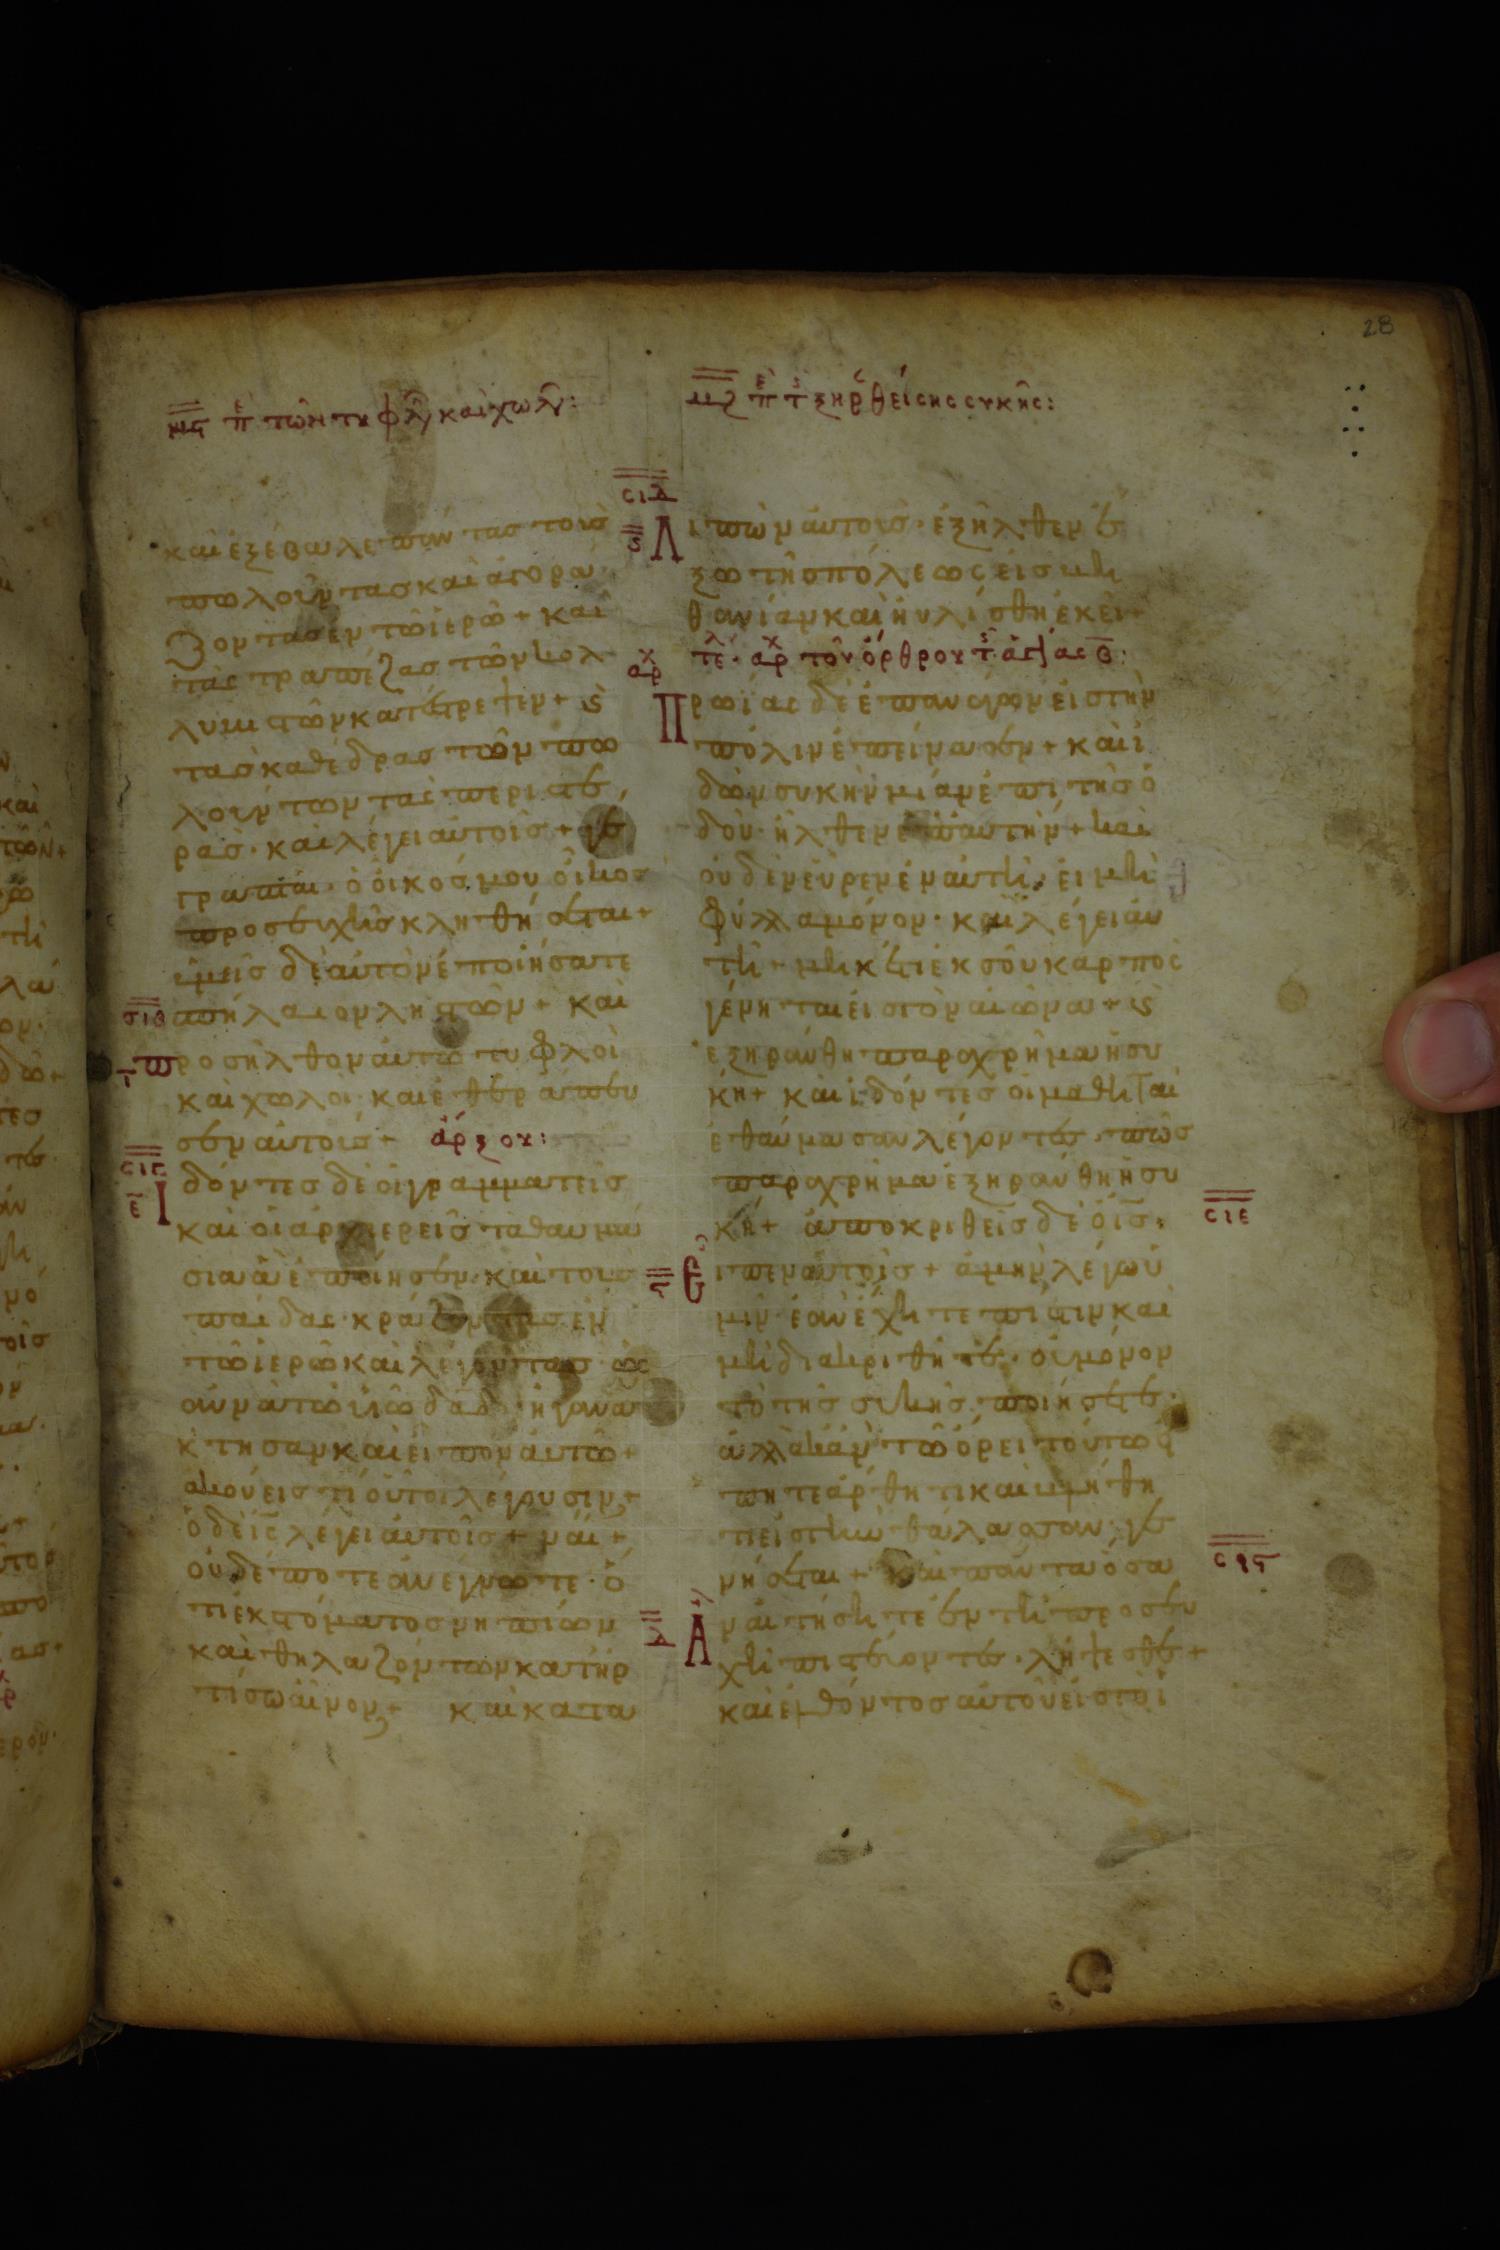 28
μς π τῶν τυφλ καὶ χωλ:
καὶ ἐξέβαλε πάντας τοὺς
πωλοῦντας καὶ ἀγορά
ζοντας ἐν τῶ ἱερῶ + καὶ
τὰς τραπέζας τῶν κολ
λυβιστῶν κατέστρεψεν + κ
τὰς καθέδρας τῶν πω
λούντων τὰς περιστε
ρὰς · καὶ λέγει αὐτοῖς + γέ
γραπται · ὁ οἶκός μου οἶκος
προσευχῆς κληθήσεται +
ὑμεῖς δὲ αὐτὸν ἐποιήσατε
σπήλαιον ληστῶν + καὶ
σιβ
προσῆλθον αὐτῶ τυφλοὶ
καὶ χωλοὶ · καὶ ἐθεράπευ
σεν αὐτούς + ἀρξου:
σιγ
ε
Ιδόντες δὲ οἱ γραμματεῖς
καὶ οἱ ἀρχιερεῖς τὰ θαυμά
σια ἃ ἐποίησεν · καὶ τοὺς
παῖδας κράζοντας ἐν
τῶ ἱερῶ καὶ λέγοντας · ὡς
αννὰ τῶ υἱῶ δαδ · ἠγανά
κτησαν καὶ εἶπον αὐτῶ +
ἀκούεις τί οὗτοι λέγουσιν +
ὁ δὲ ις λέγει αὐτοῖς + ναί +
οὐδέποτε ἀνέγνωτε · ὅ
τι ἐκ στόματος νηπίων
καὶ θηλαζόντων κατηρ
τίσω αἶνον + καὶ κατα
μζ π τ ξηρθείσης συκῆς:
σιδ
ς
λιπὼν αὐτοὺς · ἐξῆλθεν ἔ
ξω τῆς πόλεως εἰς βη
θανίαν καὶ ηὐλίσθη ἐκεῖ +
τε · αρ τοῦ ὄρθρου τ ἁγ ας β:
αρ
Πρωίας δὲ ἐπανάγων εἰς τὴν
πόλιν ἐπείνασεν + καὶ ἰ
δὼν συκὴν μίαν ἐπὶ τῆς ὁ
δοῦ · ἦλθεν ἐπ αὐτὴν + καὶ
οὐδὲν εὗρεν ἐν αὐτῆ · εἰ μὴ
φύλλα μόνον · καὶ λέγει αὐ
τῆ · μηκέτι ἐκ σοῦ καρπὸς
γένηται εἰς τὸν αἰῶνα + κ
ἐξηράνθη παραχρῆμα ἡ συ
κῆ + καὶ ἰδόντες οἱ μαθηταὶ
ἐθαύμασαν λέγοντες · πῶς
παραχρῆμα ἐξηράνθη ἡ συ
σιε
κῆ + ἀποκριθεὶς δὲ ὁ ις ·
Ειπεν αὐτοῖς + ἀμὴν λέγω ὑ
μῖν · ἐὰν ἔχητε πίστιν καὶ
μὴ διακριθῆτε · οὐ μόνον
τὸ τῆς συκῆς ποιήσετε ·
ἀλλὰ κἂν τῶ ὄρει τούτω εἴ
πητε ἄρθητι καὶ βλήθη
τι εἰς τὴν θάλασσαν · γε
σις
νήσεται + καὶ πάντα ὅσα
Αν αἰτήσητε ἐν τῆ προσευ
χῆ πιστεύοντες · λήψεσθε +
καὶ ἐλθόντος αὐτοῦ εἰς τὸ ἱ